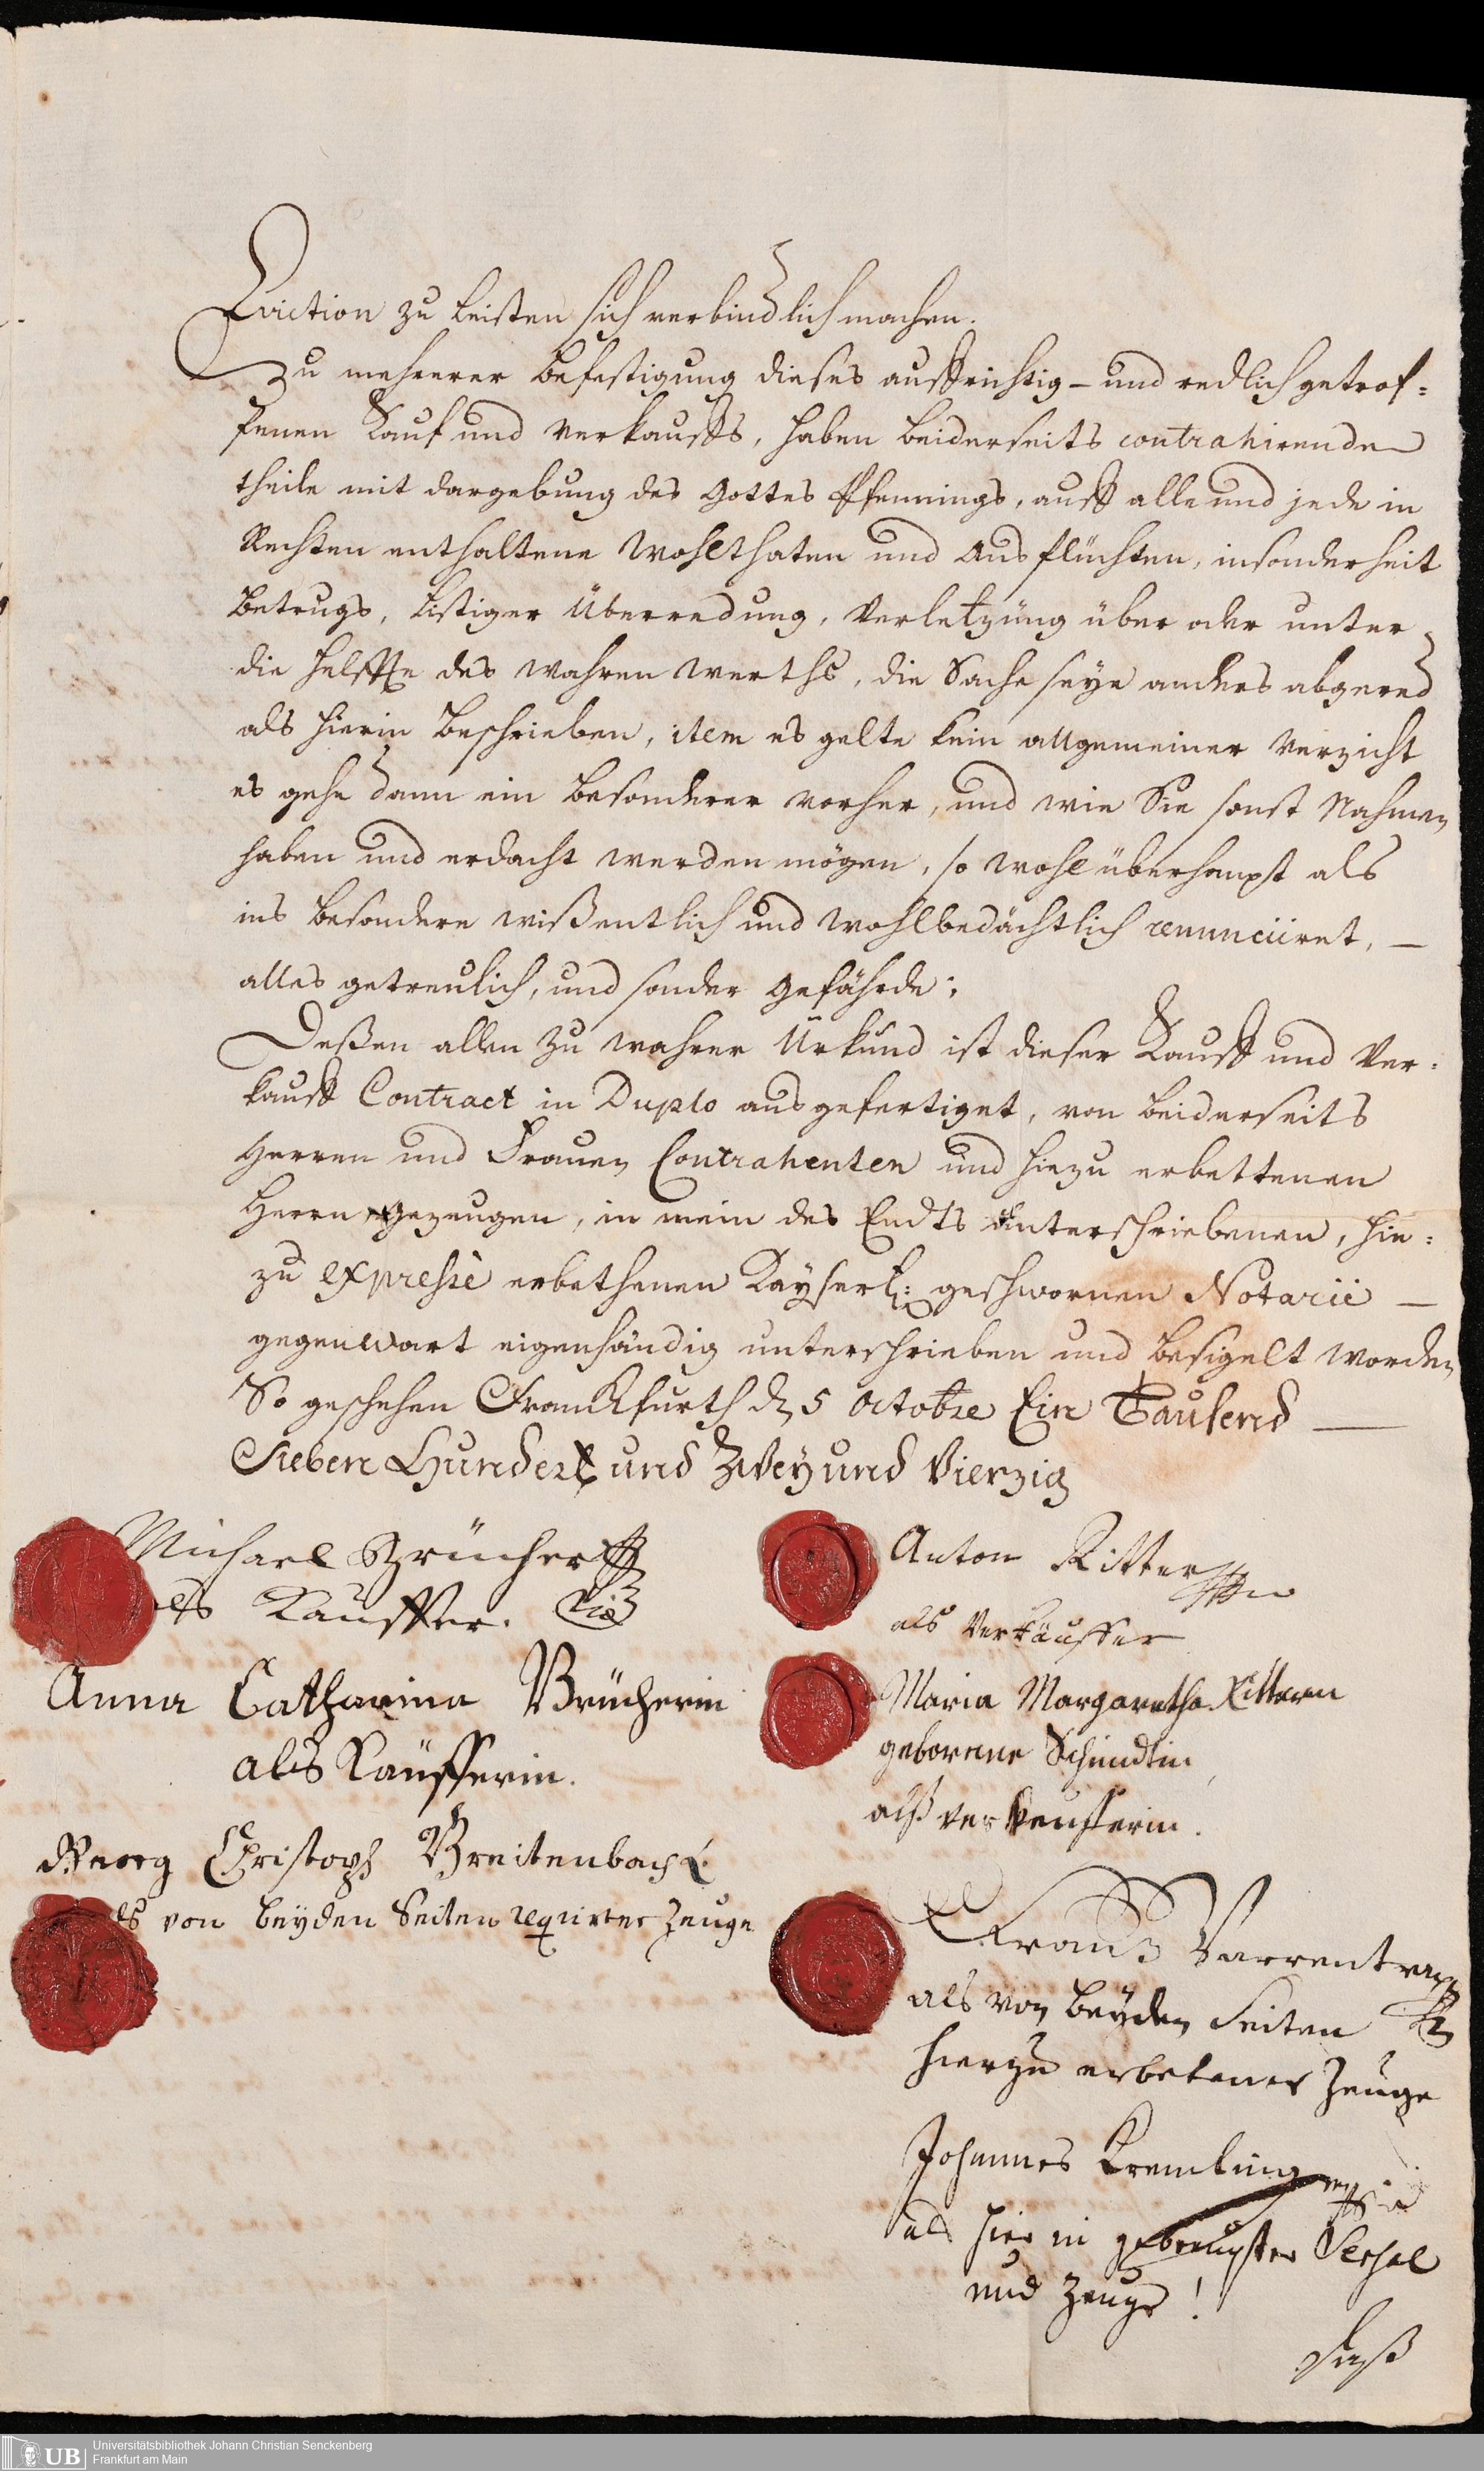 Eviction zu leisten sich verbindlich machen.
Zu mehrerer befestigung dieses auffrichtig- und redlich getrof=
fenen Kauf und Verkauffs, haben beiderseits contrahirende
theile mit dargebung des Gottes Pfennings, auff alle und jede in
Rechten enthaltene Wohlthaten und Ausflüchten, insonderheit
Betrugs, Listiger Überredung, Verletzung über oder unter
die Helffte des wahren werths, die Sache seye anders abgered
als hierin beschrieben, item es gelte kein allgemeiner Verzicht
es gehe dann ein besonderer vorher, und wie Sie sonst Nahmen
haben und erdacht werden mögen, so wohl überhaupt als
ins besondere wißentlich und wohlbedächtlich renunciiret, —
alles getreulich, und sonder gefährde;
Deßen allen zu wahrer Urkund ist dieser Kauff und Ver=
kauff Contract in Duplo ausgefertiget, von beiderseits
Herren und Frauen Contrahenten und hiezu erbettenen
Herrn gezeugen, in mein des Endts unterschriebenen, hie=
zu expressè erbethenen Kayserl: geschwornen Notarii —
gegenwart eigenhändig unterschrieben und besigelt worden
So geschehen Franckfurth d 5 Octobre Ein Tausend —
Sieben Hundert und Zwey und Vierzig
Michael Brücher
als Kauffer.
Anna Catharina Brücherin
als Käufferin.
Georg Christoph Breitenbach
als von beyden Seiten requirter Zeuge
Anton Ritter
als Verkäuffer
Maria Margaretha Rittern
geborene Schmidtin
alß verkeufferin.
Frantz Varrentrapp
als von beyden Seiten
hierzu erbetener Zeuge
Johannes Kremling
als hier in
und Zeuge!
Daß
Universitätsbibliothek Johann Christian Senckenberg
Frankfurt am Main
UB